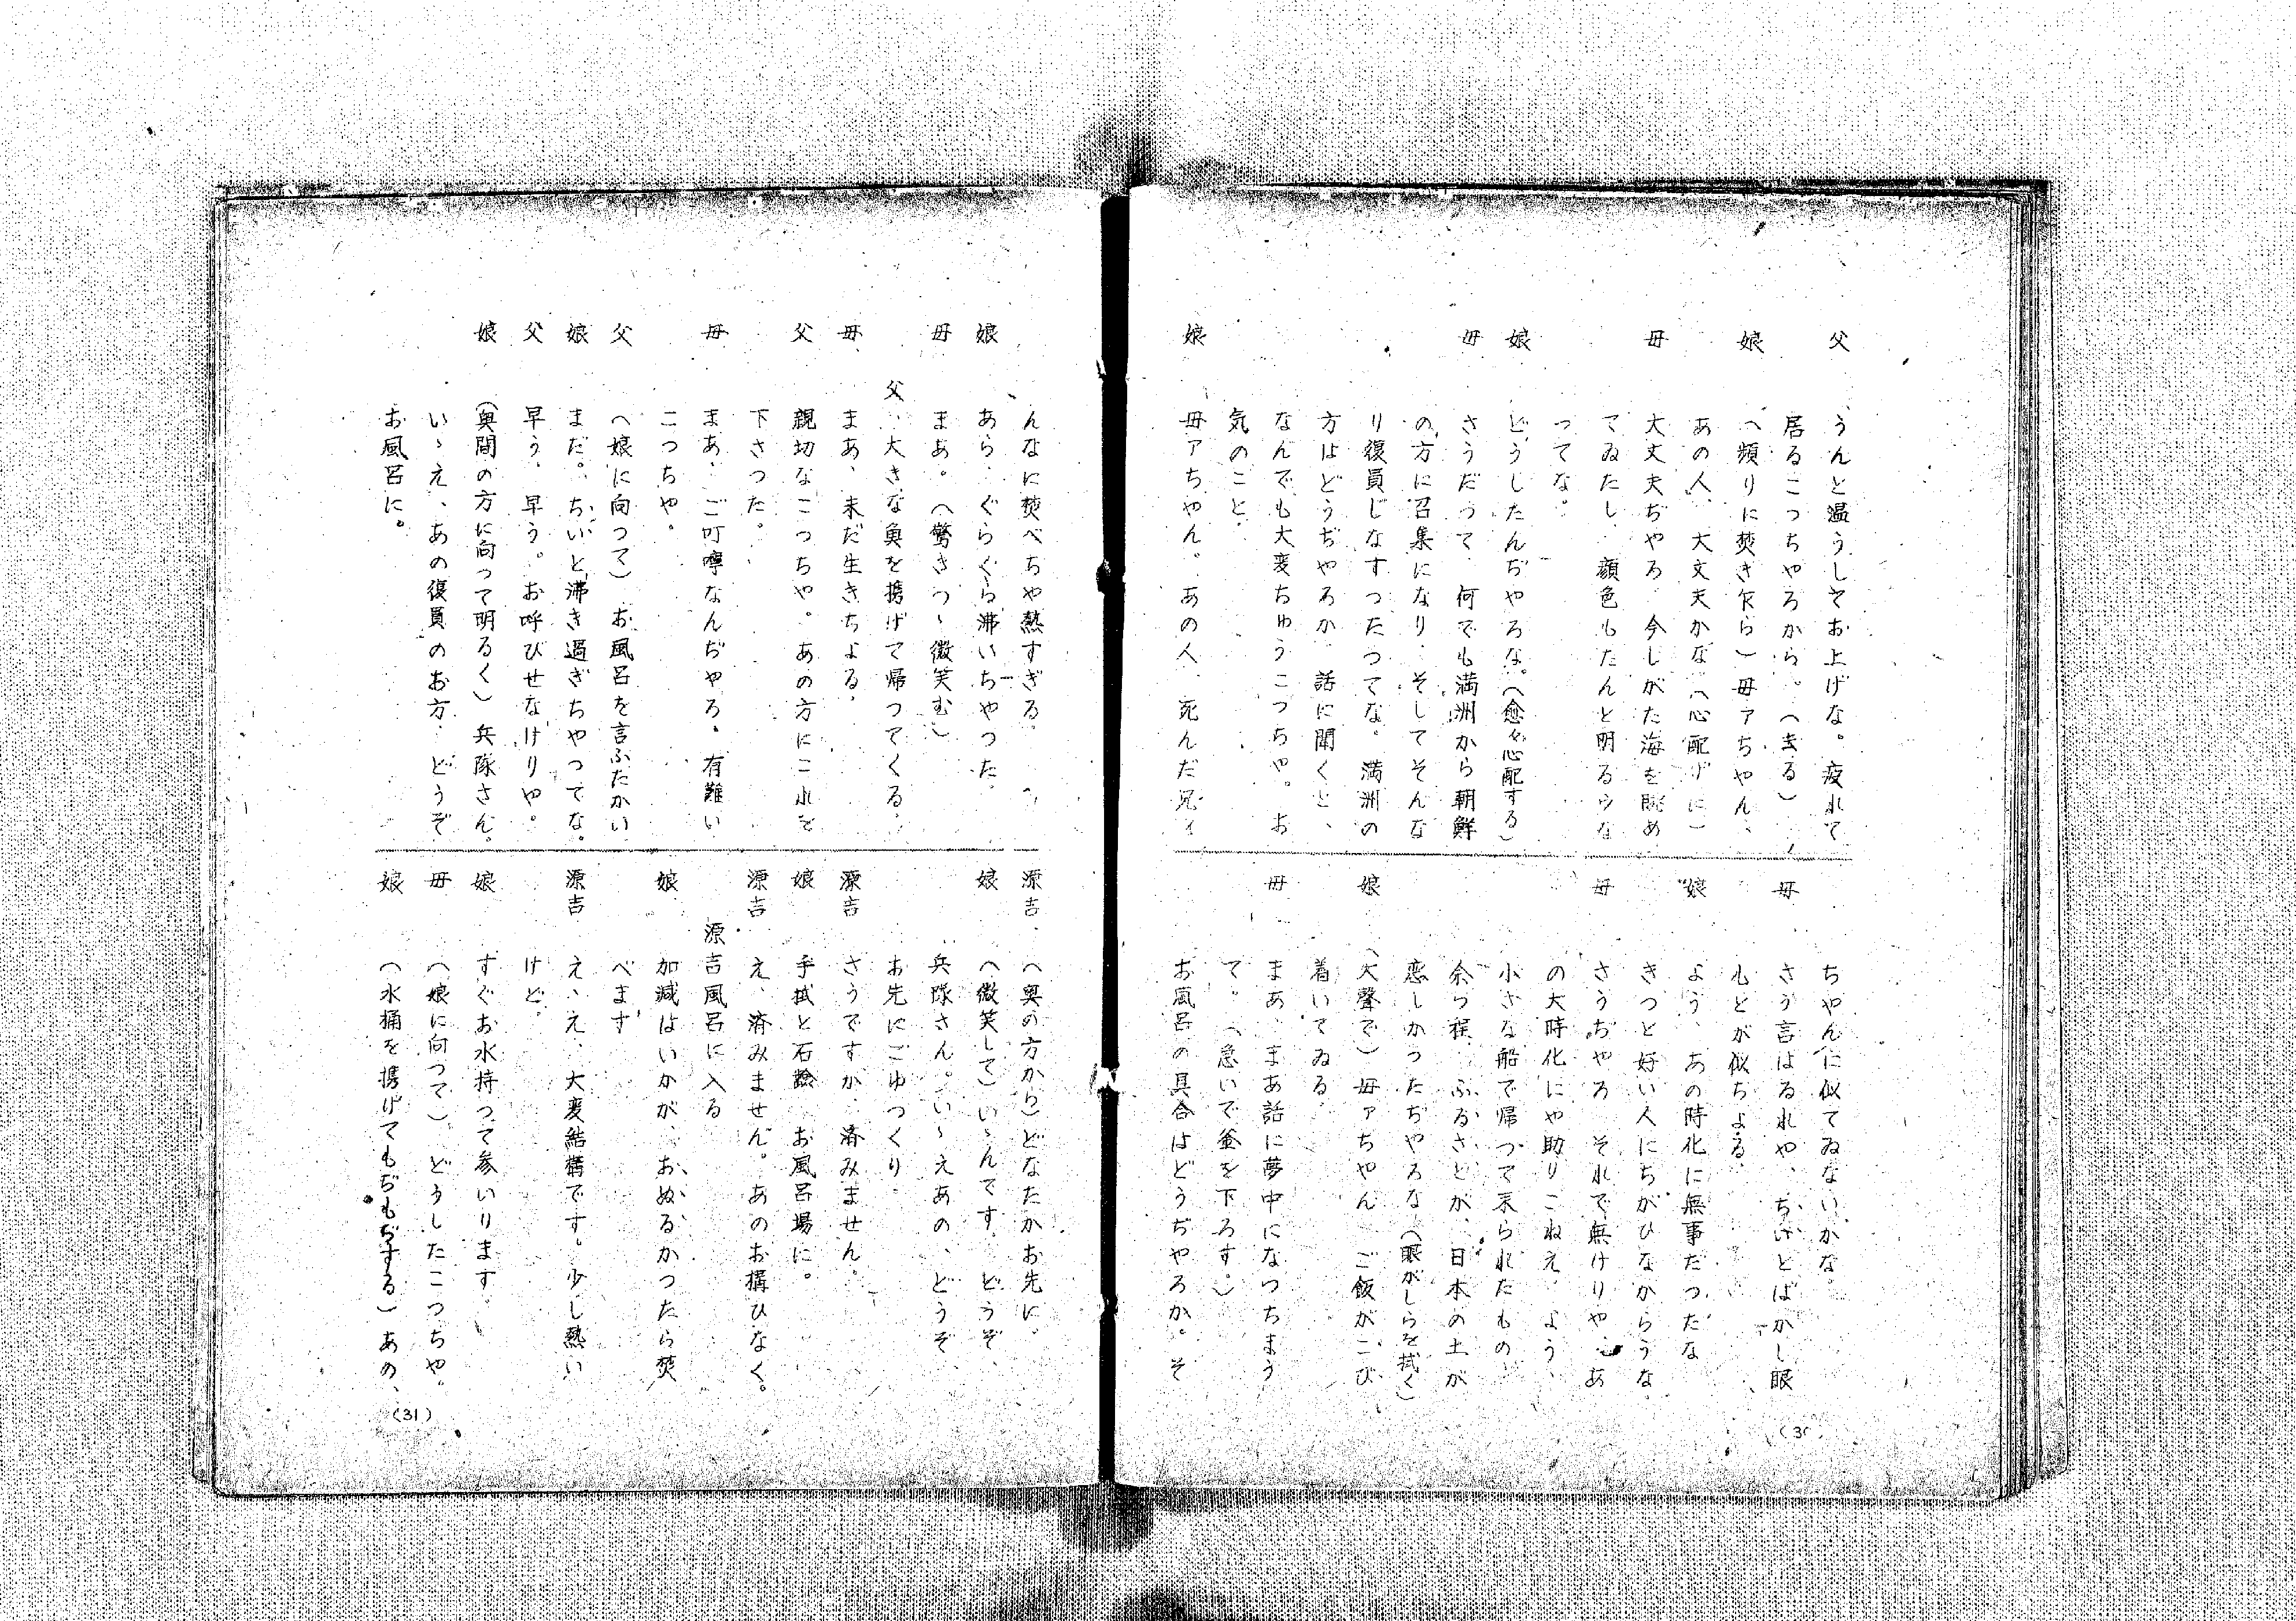 父　うんと温うしてお上げな。疲れて
居るこつちやろから。（去る）
娘　（頻りに焚き乍ら）母ァちやん、
あの人、大丈夫かな（心配げに）
母　大丈夫ぢやろ、今しがた海を眺め
てゐたし、顔色もたんと明るうな
つてな。
娘　どうしたんぢやろな。（愈々心配する）
母　さうだつて、何でも満洲から朝鮮
の方に召集になり、そしてそんな
り復員じなすつたつてな。満洲の
方はどうぢやろか、話に聞くと、
なんでも大変ちゅうこつちや。お
気のこと。
娘　母ァちやん。あの人、死んだ兄ィ
ちやんに似てゐないかな。
母　さう言はるれや、ちいとばかし眼
もとが似ちよる、
娘　よう、あの時化に無事だつたな
きつと好い人にちがひなからうな。
母　さうぢやろ　それで無けりや、あ
の大時化にや助りこねえ、よう、
小さな船で帰つて来られたもの
余つ程、ふるさとが、日本の土が
恋しかつたぢやろな（眼がしらを拭く）
娘　（大聲で）母ァちやん　ご飯がこび
着いてゐる、
母　まあ、まあ話に夢中になつちまう
て。（急いで釜を下ろす。）
お風呂の具合はどうぢやろか。そ
(30
んなに焚べちや熱すぎる。
娘　あら、ぐらぐら沸いちやつた。
母　まあ。（驚きつゝ微笑む）
父、大きな魚を携げて帰つてくる。
母　まあ、未だ生きちよる、
父　親切なこつちや。あの方にこれを
下さつた。
母　まあ、ご叮嚀なんぢやろ。有難い
こつちや。
父　（娘に向つて）お風呂を言ふたかい
娘　まだ。ちいと沸き過ぎちやつてな。
父　早う、早う。お呼びせなけりや。
娘　（奥間の方に向って明るく）兵隊さん。
いゝえ、あの復員のお方、どうぞ
お風呂に。
源吉　（奥の方から）どなたかお先に、
娘　（微笑して）いゝんです、どうぞ、
兵隊さん。いゝえあの、どうぞ、
お先にごゆつくり。
源吉　さうですか、済みません。
娘　手拭と石鹸　お風呂場に。
源吉　え、済みません。あのお構ひなく。
源吉風呂に入る
娘　加減はいかが、おぬるかつたら焚
べます
源吉　え、え、大変結構です。少し熱い
けど。
娘　すぐお水持つて参いります。
母　（娘に向つて）どうしたこつちや。
娘　（水桶を携げてもぢもぢする）あの、
(31)